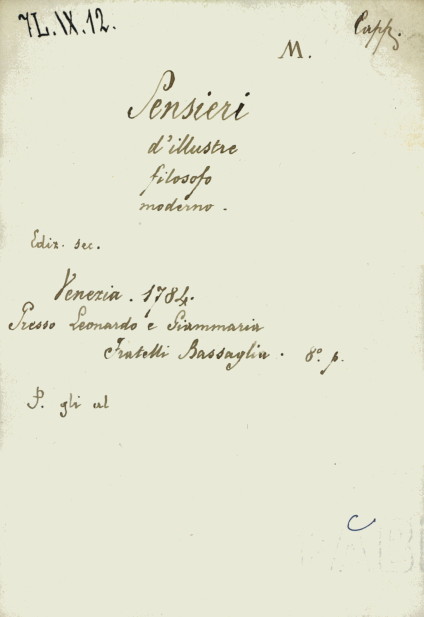 7L.IX.12.
Capp.
M.
Pensieri
d'illustre
filosofo
moderno.
Ediz. sec.
Venezia. 1784.
Presso Leonardo e Giammaria
Fratelli Bassaglia. 8º. p.
P. gli al
C